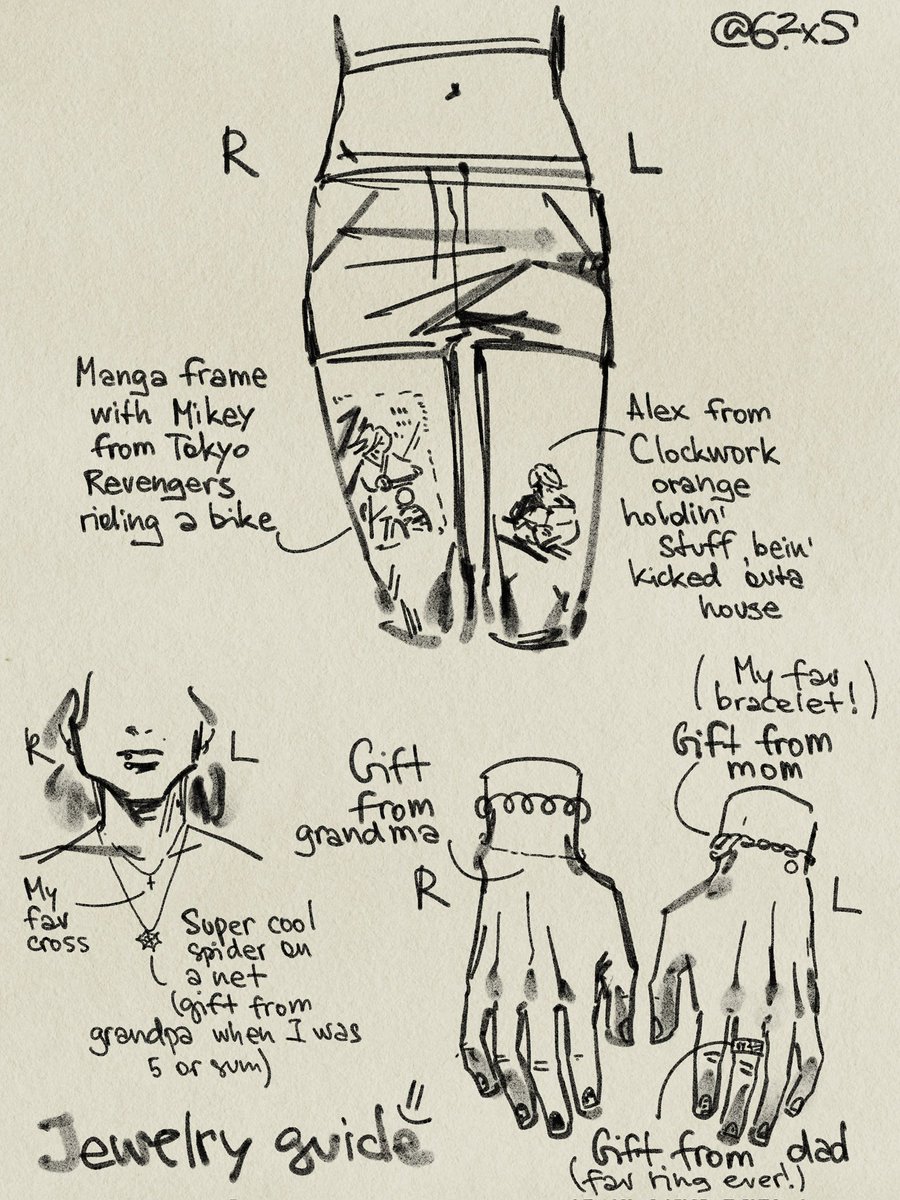 @62xS
R
L
Manga frame
with Mikey
from Tokyo
Revengers
riding a bike
Alex from
Clockwork
orange
holdin'
stuff, bein'
kicked outa
house
R
L
My
fav
cross
Super cool
spider on
a net
(gift from
grandpa when I was
5 or sum)
Gift
from
grandma
R
(My fav
bracelet!)
Gift from
mom
L
Gift from dad
(fav ring ever!)
Jewelry guide